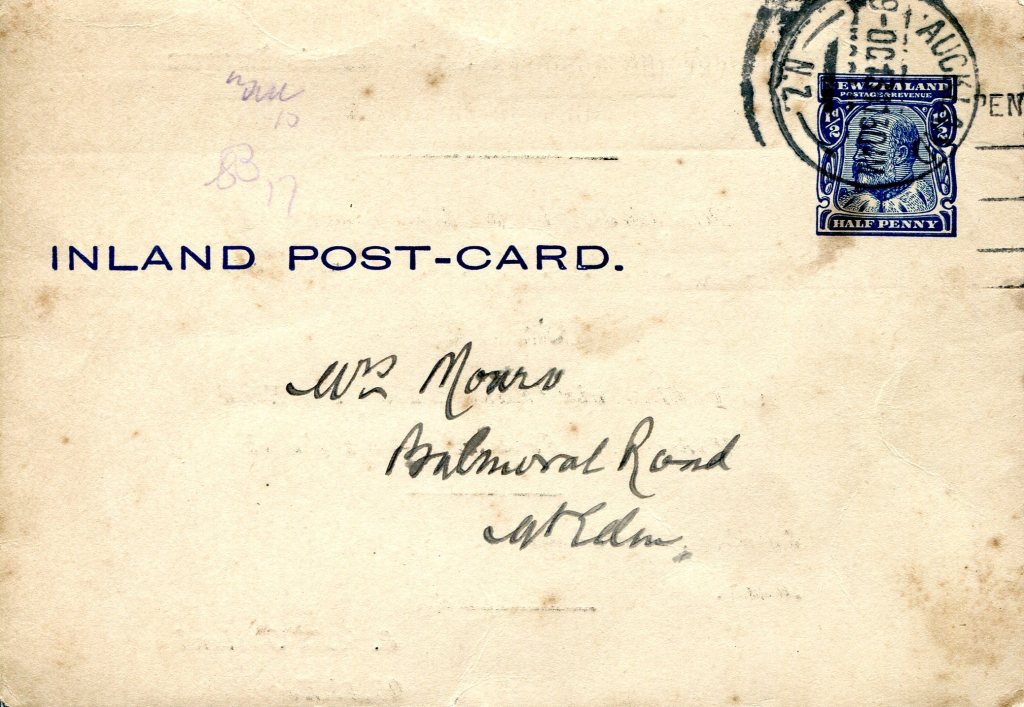 AUCKLA
N.Z.
NEW ZEALAND
POSTAGE & REVENUE
½d ½d
HALF PENNY
PEN
INLAND POST-CARD.
Mrs Monro
Balmoral Road
Mt Eden